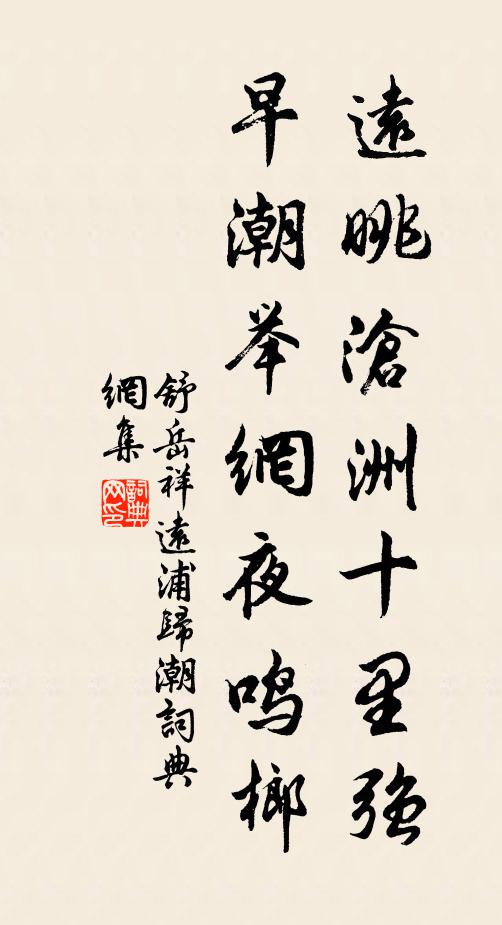 遠眺滄洲十里強
早潮举網夜鸣榔
舒岳祥遠浦歸潮詞典
網集
詞典
网印